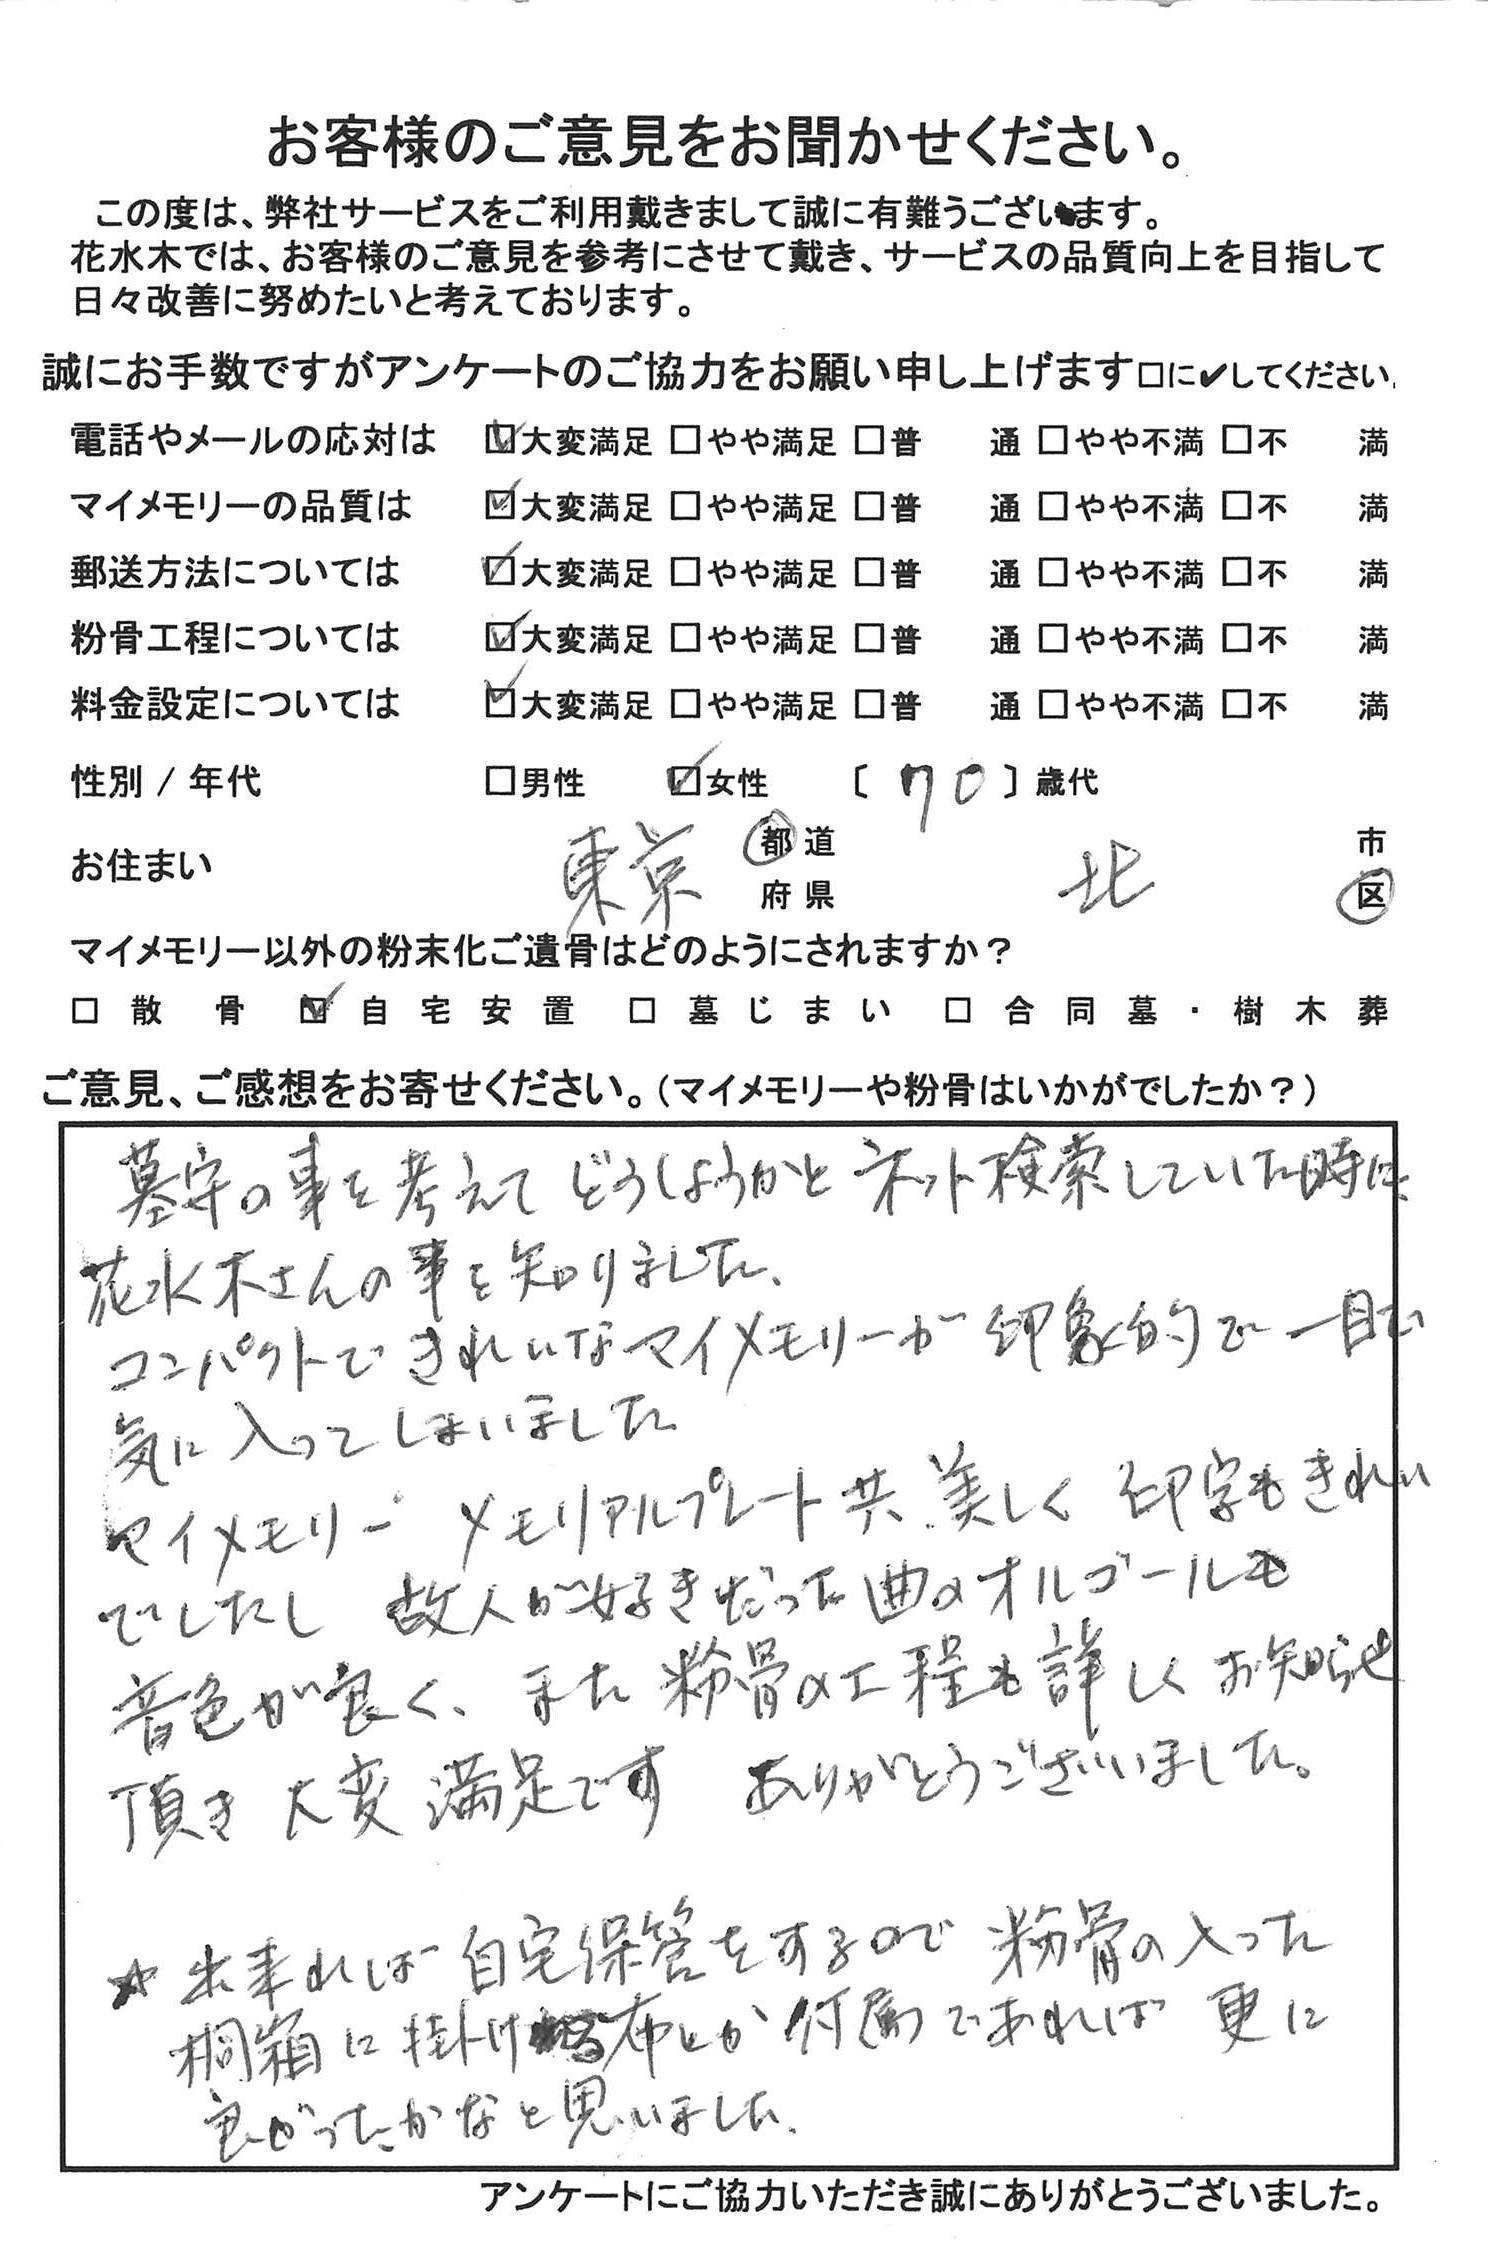 お客様のご意見をお聞かせください。
この度は、弊社サービスをご利用戴きまして誠に有難うございます。
花水木では、お客様のご意見を参考にさせて戴き、サービスの品質向上を目指して
日々改善に努めたいと考えております。
誠にお手数ですがアンケートのご協力をお願い申し上げます□に✔してください。
電話やメールの応対は ☑大変満足 □やや満足 □普 通 □やや不満 □不 満
マイメモリーの品質は ☑大変満足 □やや満足 □普 通 □やや不満 □不 満
郵送方法については ☑大変満足 □やや満足 □普 通 □やや不満 □不 満
粉骨工程については ☑大変満足 □やや満足 □普 通 □やや不満 □不 満
料金設定については ☑大変満足 □やや満足 □普 通 □やや不満 □不 満
性別 / 年代 □男性 ☑女性 〔 70 〕歳代
お住まい 東京 都道府県 北 市区
マイメモリー以外の粉末化ご遺骨はどのようにされますか？
□ 散骨 ☑ 自宅安置 □ 墓じまい □ 合同墓・樹木葬
ご意見、ご感想をお寄せください。（マイメモリーや粉骨はいかがでしたか？）
墓守の事を考えてどうしようかとネット検索していた時に、
花水木さんの事を知りました、
コンパクトできれいなマイメモリーが印象的で一目で
気に入ってしまいました
マイメモリー メモリアルプレート共、美しく 印字もきれい
でしたし 故人が好きだった曲のオルゴールも
音色が良く、また 粉骨の工程も詳しくお知らせ
頂き 大変満足です ありがとうございました。
☆出来れば自宅保管をするので粉骨の入った
桐箱に掛ける布とか付属であれば 更に
良かったかなと思いました、
アンケートにご協力いただき誠にありがとうございました。